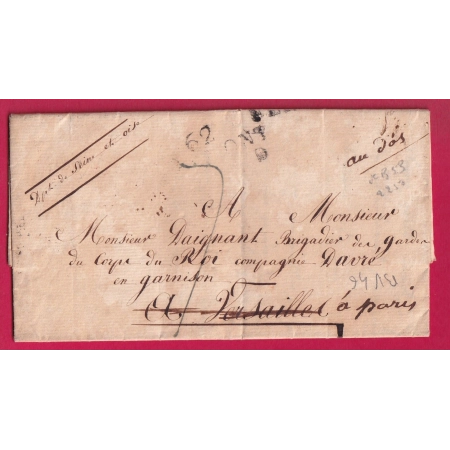 62
Dpt de Seine et oise
au dos
A Monsieur
Monsieur Daignant Brigadier des gardes
du Corps du Roi compagnie Davré
en garnison
A Versailles à paris